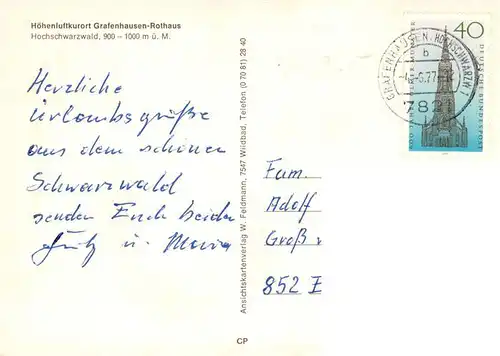 Höhenluftkurort Grafenhausen-Rothaus
Hochschwarzwald, 900 – 1000 m ü. M.
Herzliche
Urlaubsgrüße
aus dem schönen
Schwarzwald
senden Euch beiden
Fritz u. Maria
Ansichtskartenverlag W. Feldmann, 7547 Wildbad, Telefon (0 70 81) 28 40
CP
GRAFENHAUSEN, HOCHSCHWARZW
b
6.77
782
40
DEUTSCHE BUNDESPOST
Fam.
Adolf
Groß
852 E